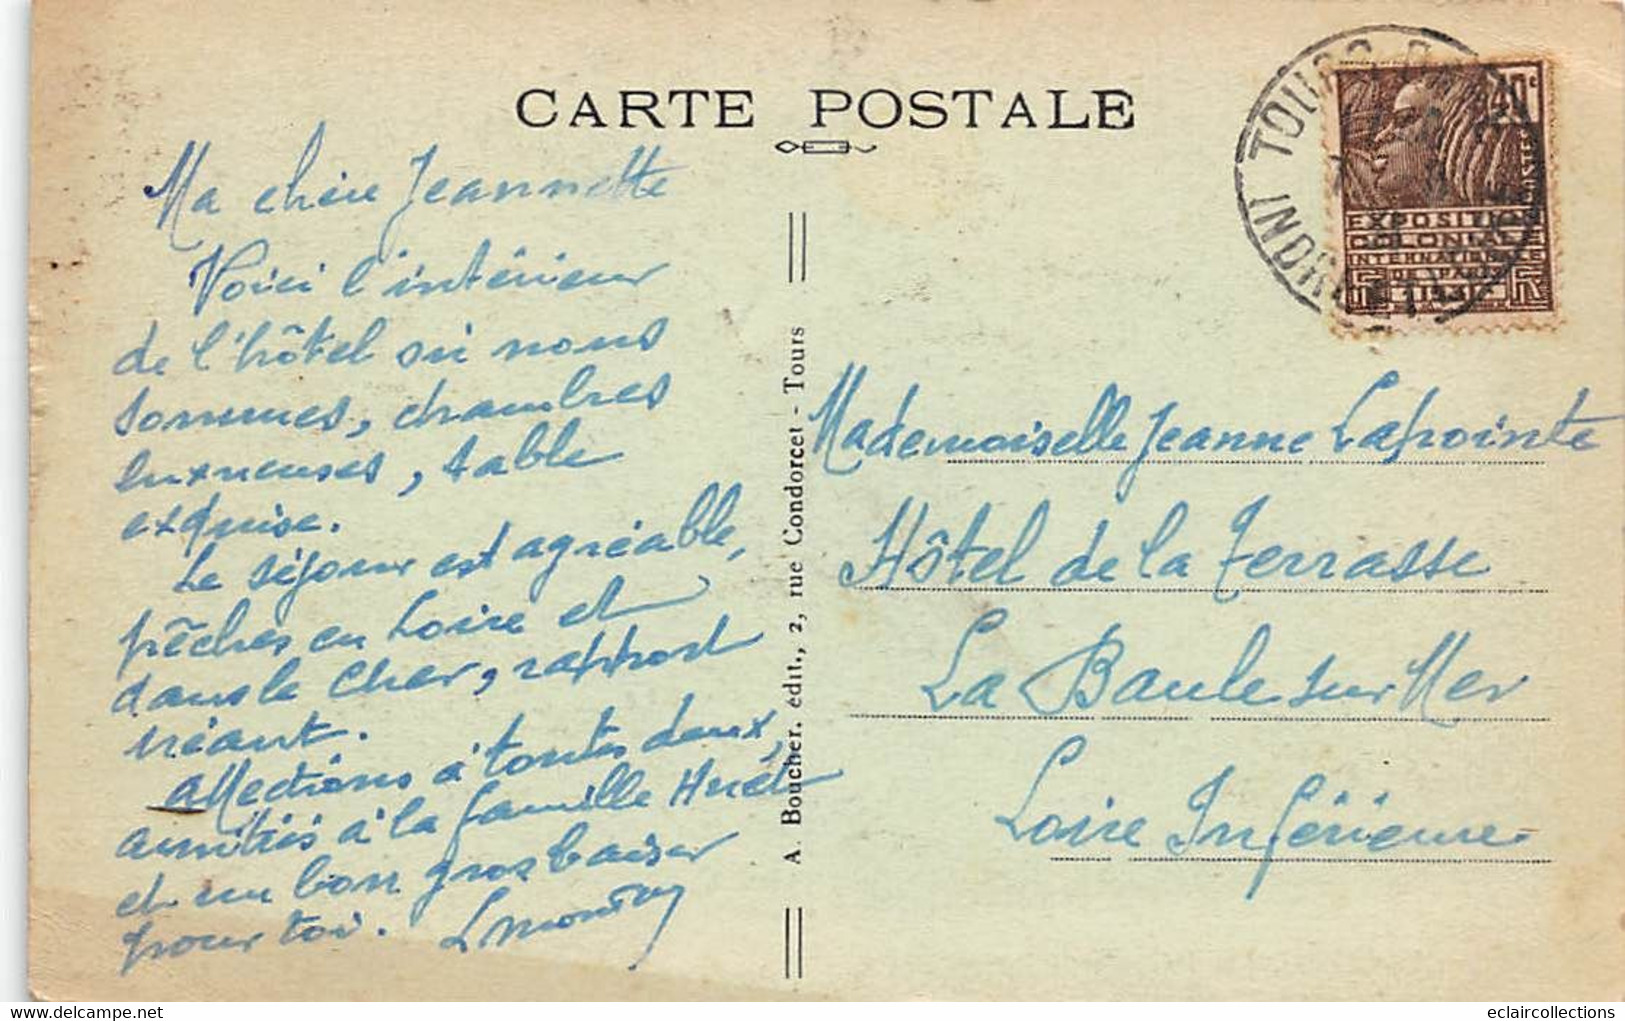 CARTE POSTALE
Ma chère Jeannette
Voici l'intérieur
de l'hôtel où nous
sommes, chambres
luxueuses, table
exquise.
Le séjour est agréable,
pêches en Loire et
dans le Cher, rapport
néant.
Affections à toutes deux,
amitiés à la famille Huet
et un bon gros baiser
pour toi.
A. Boucher. édit., 2, rue Condorcet - Tours
TOURS
40c
POSTES
EXPOSITION
COLONIALE
INTERNATIONALE
DE PARIS
RF
Mademoiselle Jeanne Lapointe
Hôtel de la Terrasse
La Baule sur Mer
Loire Inférieure
eclaircollections